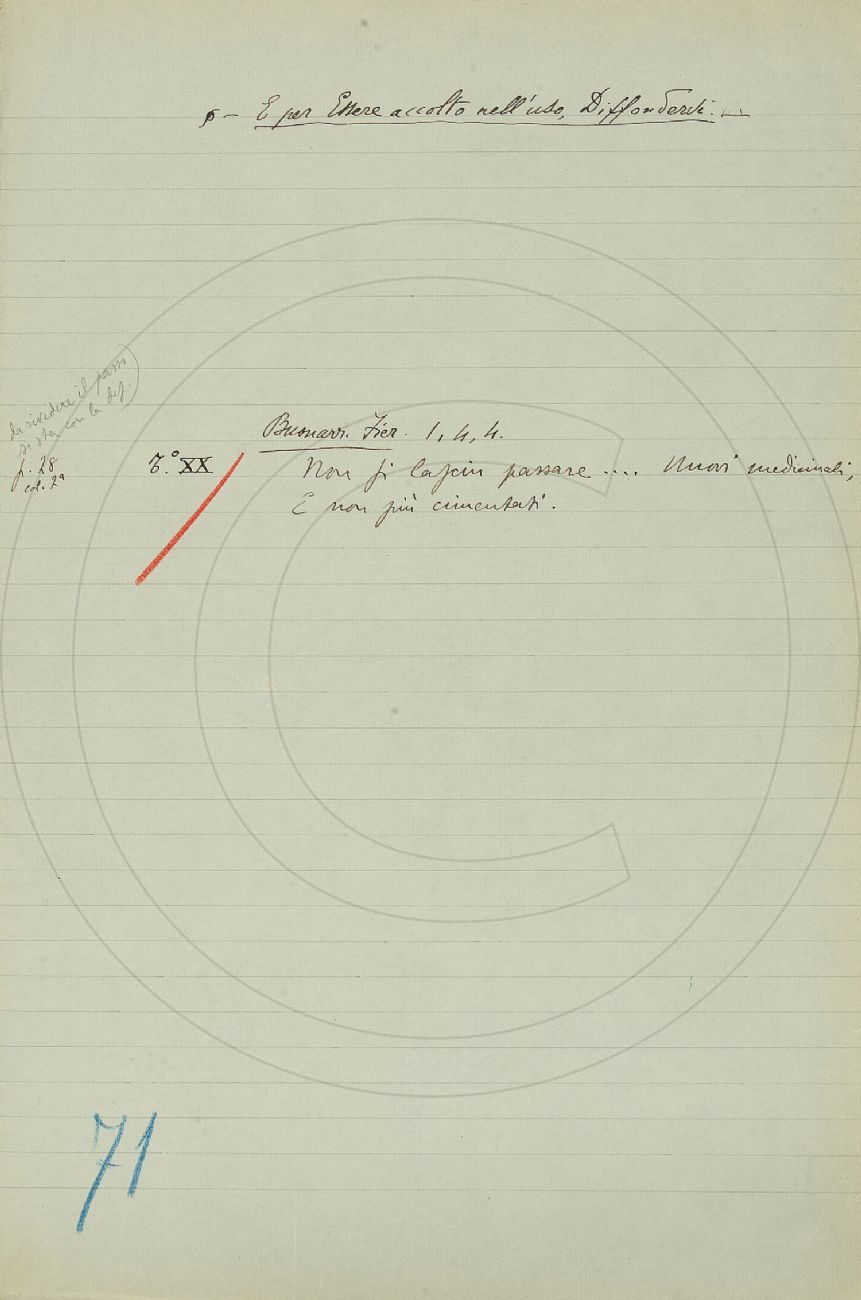 § – E per Essere accolto nell'uso, Diffondersi. —
da rivedere il passo
se sta con la def.
p. 28
col. 2ª
T.° XX
Buonarr. Fier. 1, 4, 4.
Non si lascin passare .... Nuovi medicinali,
E non più cimentati.
71